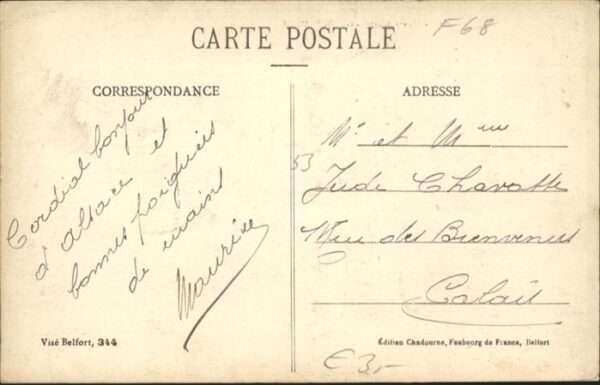 F68
CARTE POSTALE
CORRESPONDANCE
Cordial bonjour
d'alsace et
bonnes poignées
de mains
Maurice
Visé Belfort, 344
ADRESSE
Mr et Mme
53
Jude Chavatte
Rue des Bienvenus
Calais
Édition Chadourne, Faubourg de France, Belfort
€ 3,-